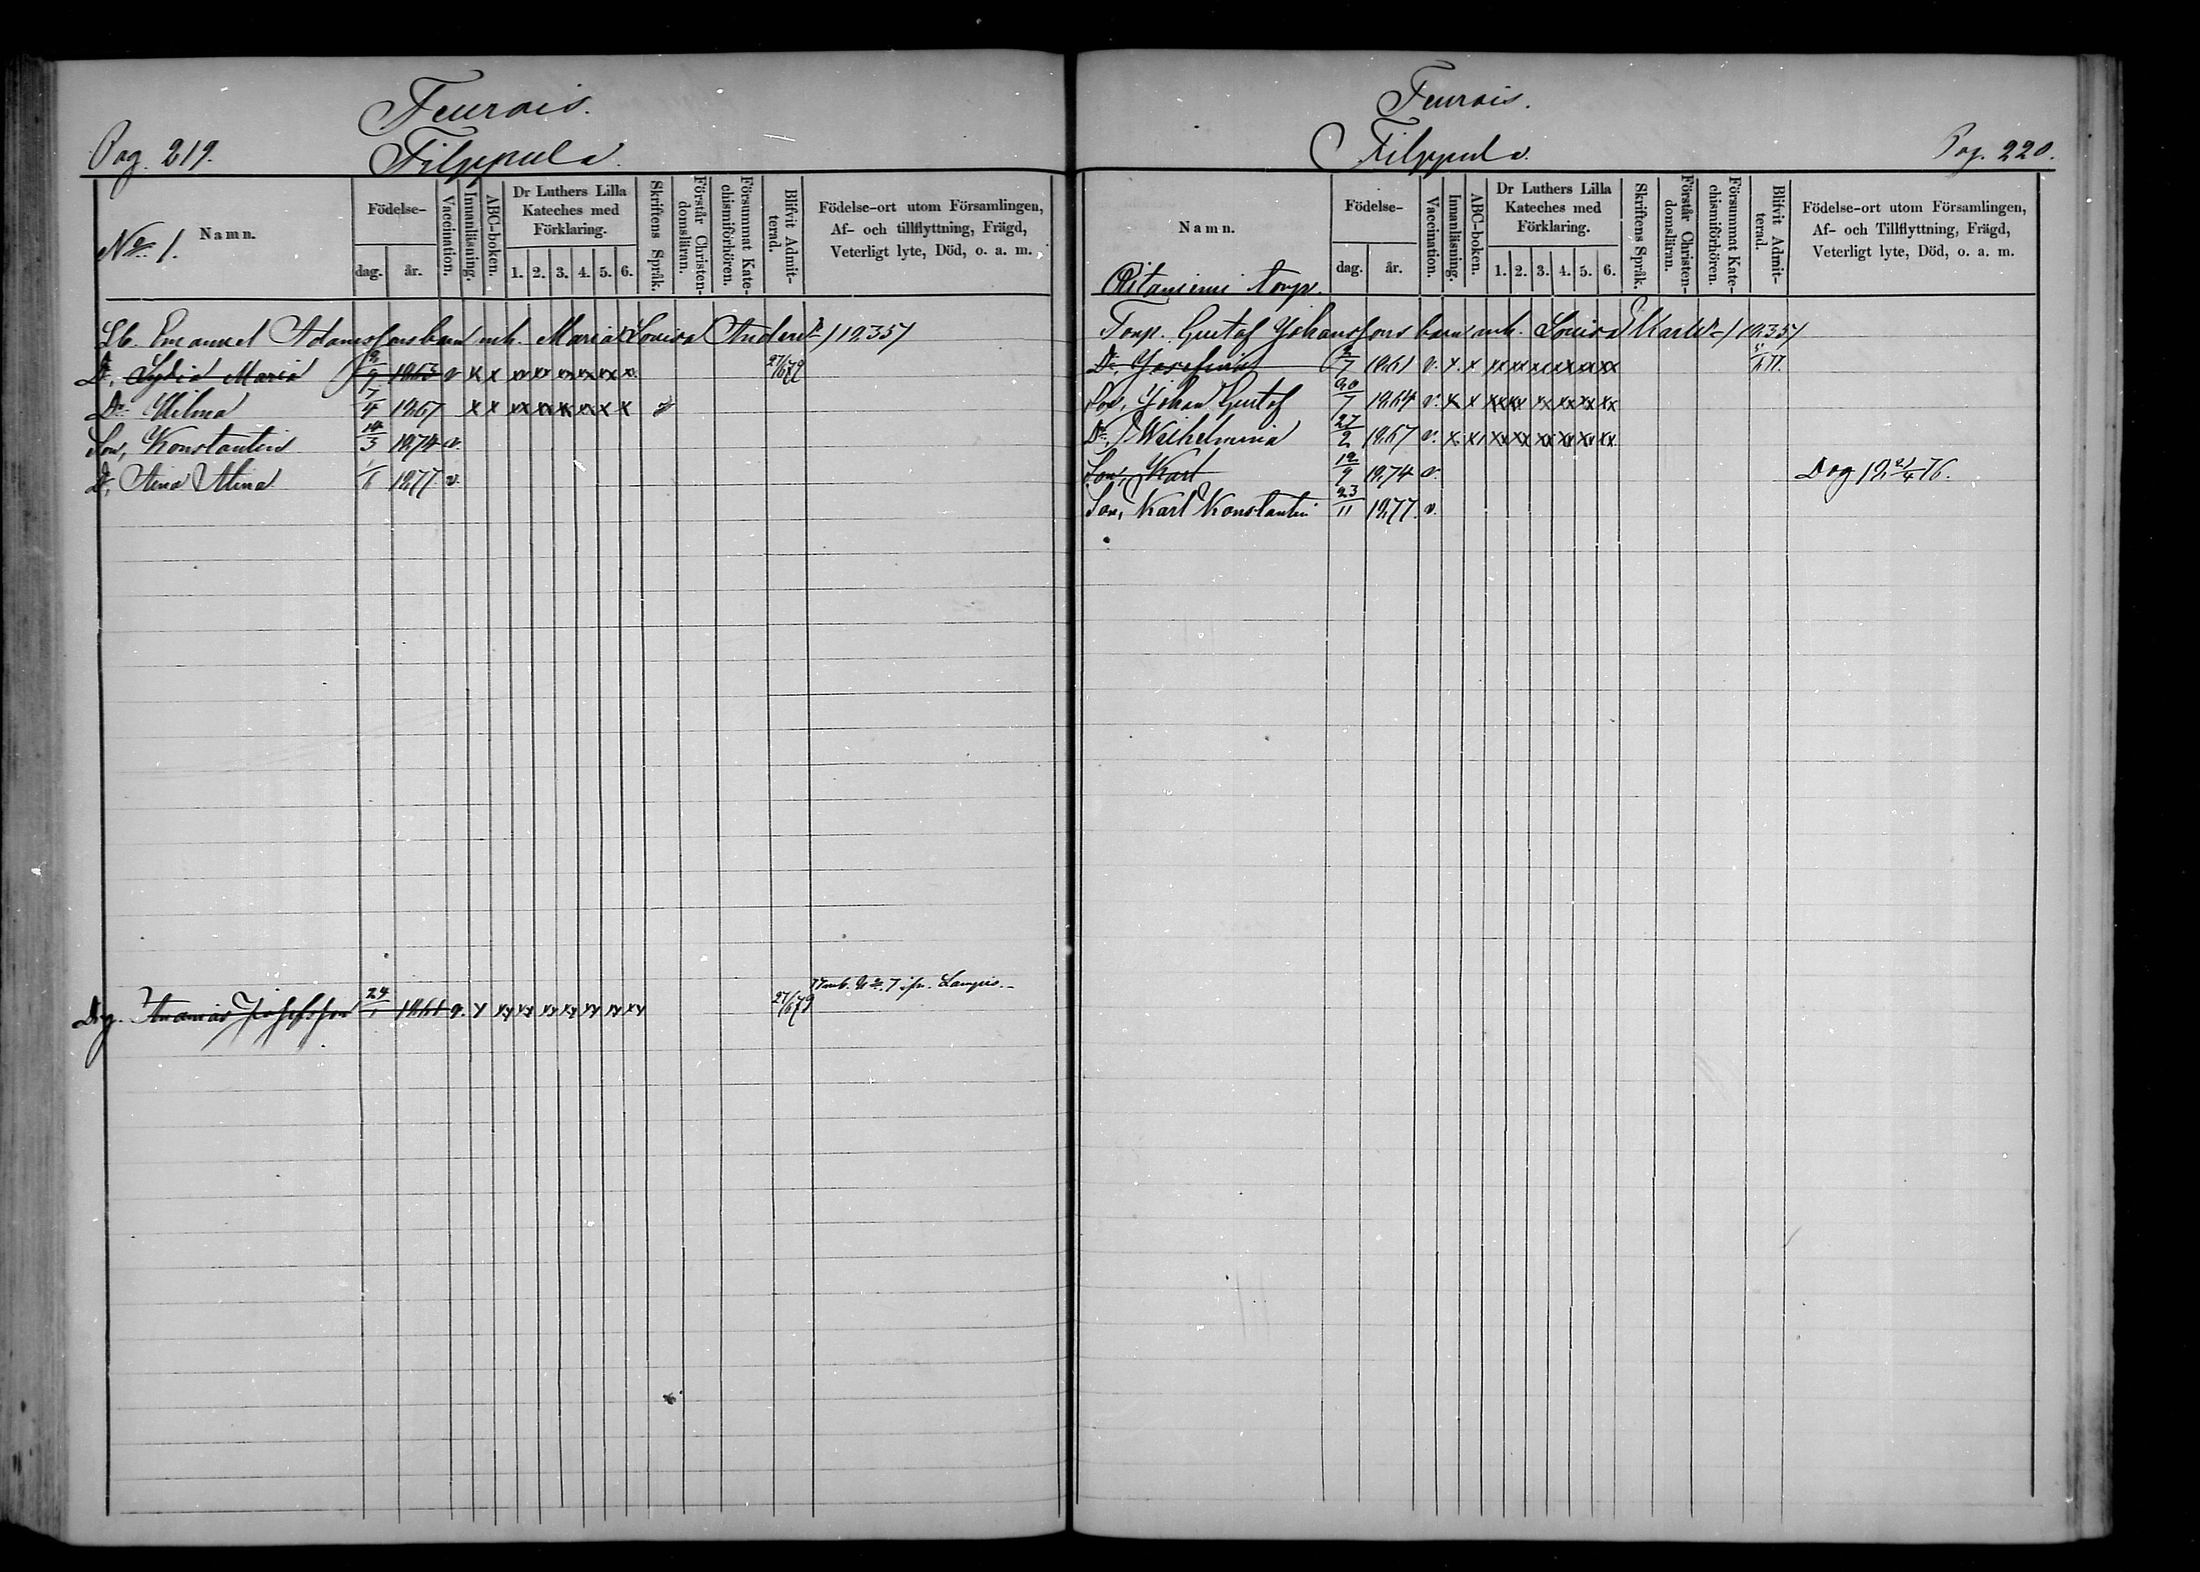 Feurais.
Pag. 219.
Filppula.
Namn.
Födelse-
dag.
år.
Vaccination.
Innanläsning.
ABC-boken.
Dr Luthers Lilla Kateches med Förklaring.
1. 2. 3. 4. 5. 6.
Skriftens Språk.
Förstår Christen-domsläran.
Försummat Kate-chismiförhören.
Blifvit Admit-terad.
Födelse-ort utom Församlingen,
Af- och tillflyttning, Frägd,
Veterligt lyte, Död, o. a. m.
No 1.
Emanuel Adamssons barn mh. Maria Lovisa Andersdr / 1835/
Dr, Lydia Maria 2/9 1863 v x x xx xx xx xx xx x 27/6 79
Dr Hilma 17/4 1867 x x xx xx xx xx x x
Son, Konstantin 14/3 1874 v.
Dr, Aina Alina 1877 v.
Drg. Ananias Josefsson 24/1 1861 v. x xx xx xx xx xx xx xx 27/6 79
Feurais.
Filppula.
Pag. 220.
Namn.
Födelse-
dag.
år.
Vaccination.
Innanläsning.
ABC-boken.
Dr Luthers Lilla Kateches med Förklaring.
1. 2. 3. 4. 5. 6.
Skriftens Språk.
Förstår Christen-domsläran.
Försummat Kate-chismiförhören.
Blifvit Admit-terad.
Födelse-ort utom Församlingen,
Af- och Tillflyttning, Frägd,
Veterligt lyte, Död, o. a. m.
Ritaniemi torp.
Torp. Gustaf Johanssons barn mh. Lovisa Karlsdr / 1835/
Dr, Josefina 2/7 1861 v. x. x xx xx xx xx xx xx 77.
Son, Johan Gustaf 20/7 1864 v. x x xx xx xx xx xx xx
Dr, Wilhelmina 27/2 1867 v. x x xx xx xx xx xx xx
Son, Karl 12/9 1874 v. Dog 18 21/4 76.
Son, Karl Konstantin 23/11 1877. v.